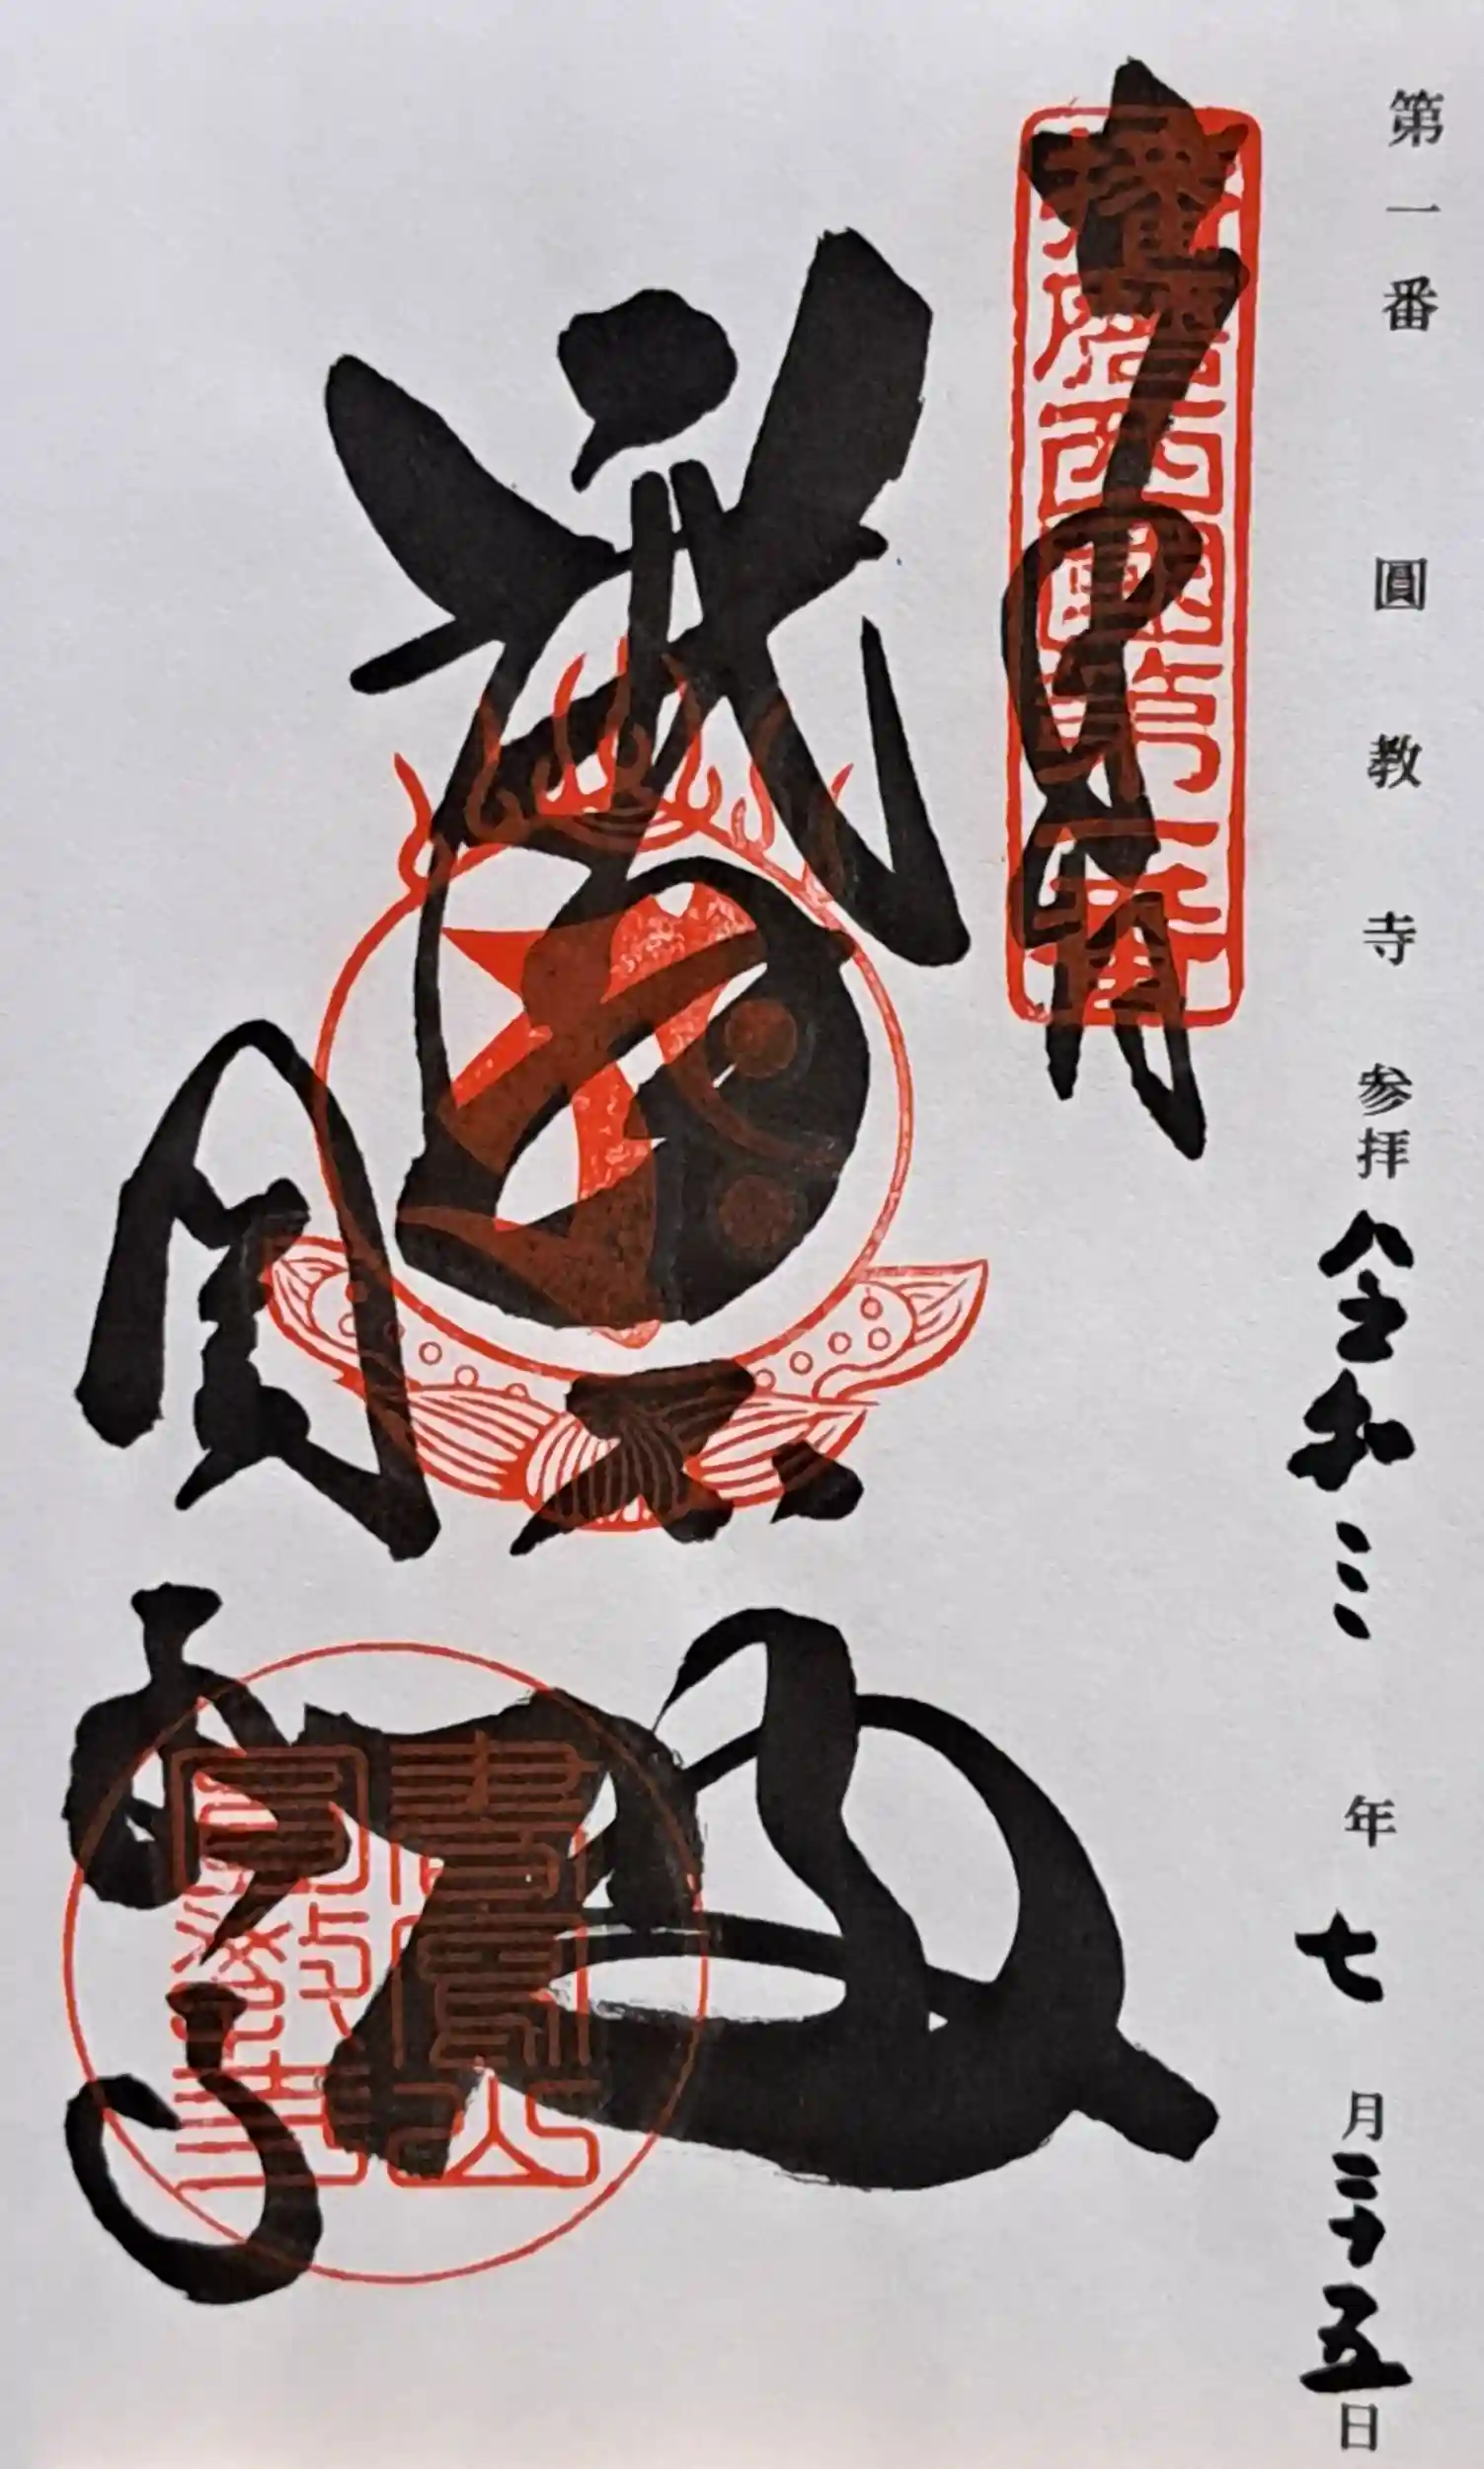 第一番 圓教寺 参拝 令和三年七月二十五日
奉拝
播磨西國第一番
圓教寺
書寫山圓教寺